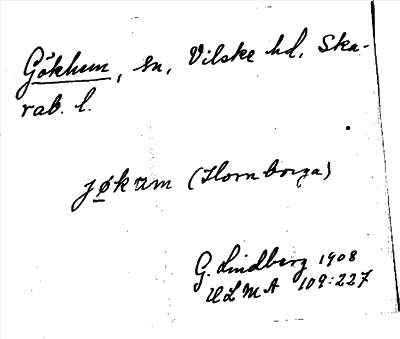 Gökhem, sn, Vilske hd, Ska-
rab. l.
jøkum (Hornborga)
G. Lindberg 1908
ULMA 109:227